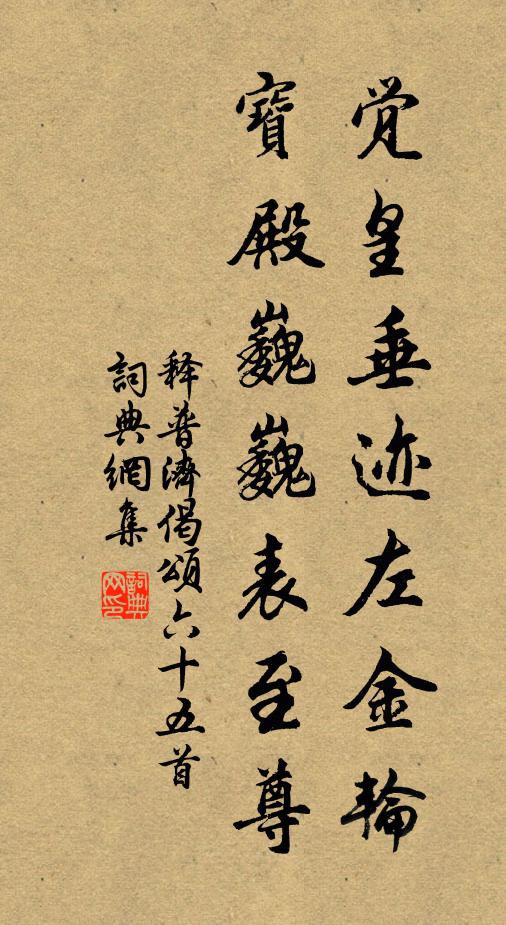 觉皇垂迹左金輪
寶殿巍巍表至尊
释普濟偈頌六十五首
詞典網集
詞典网印